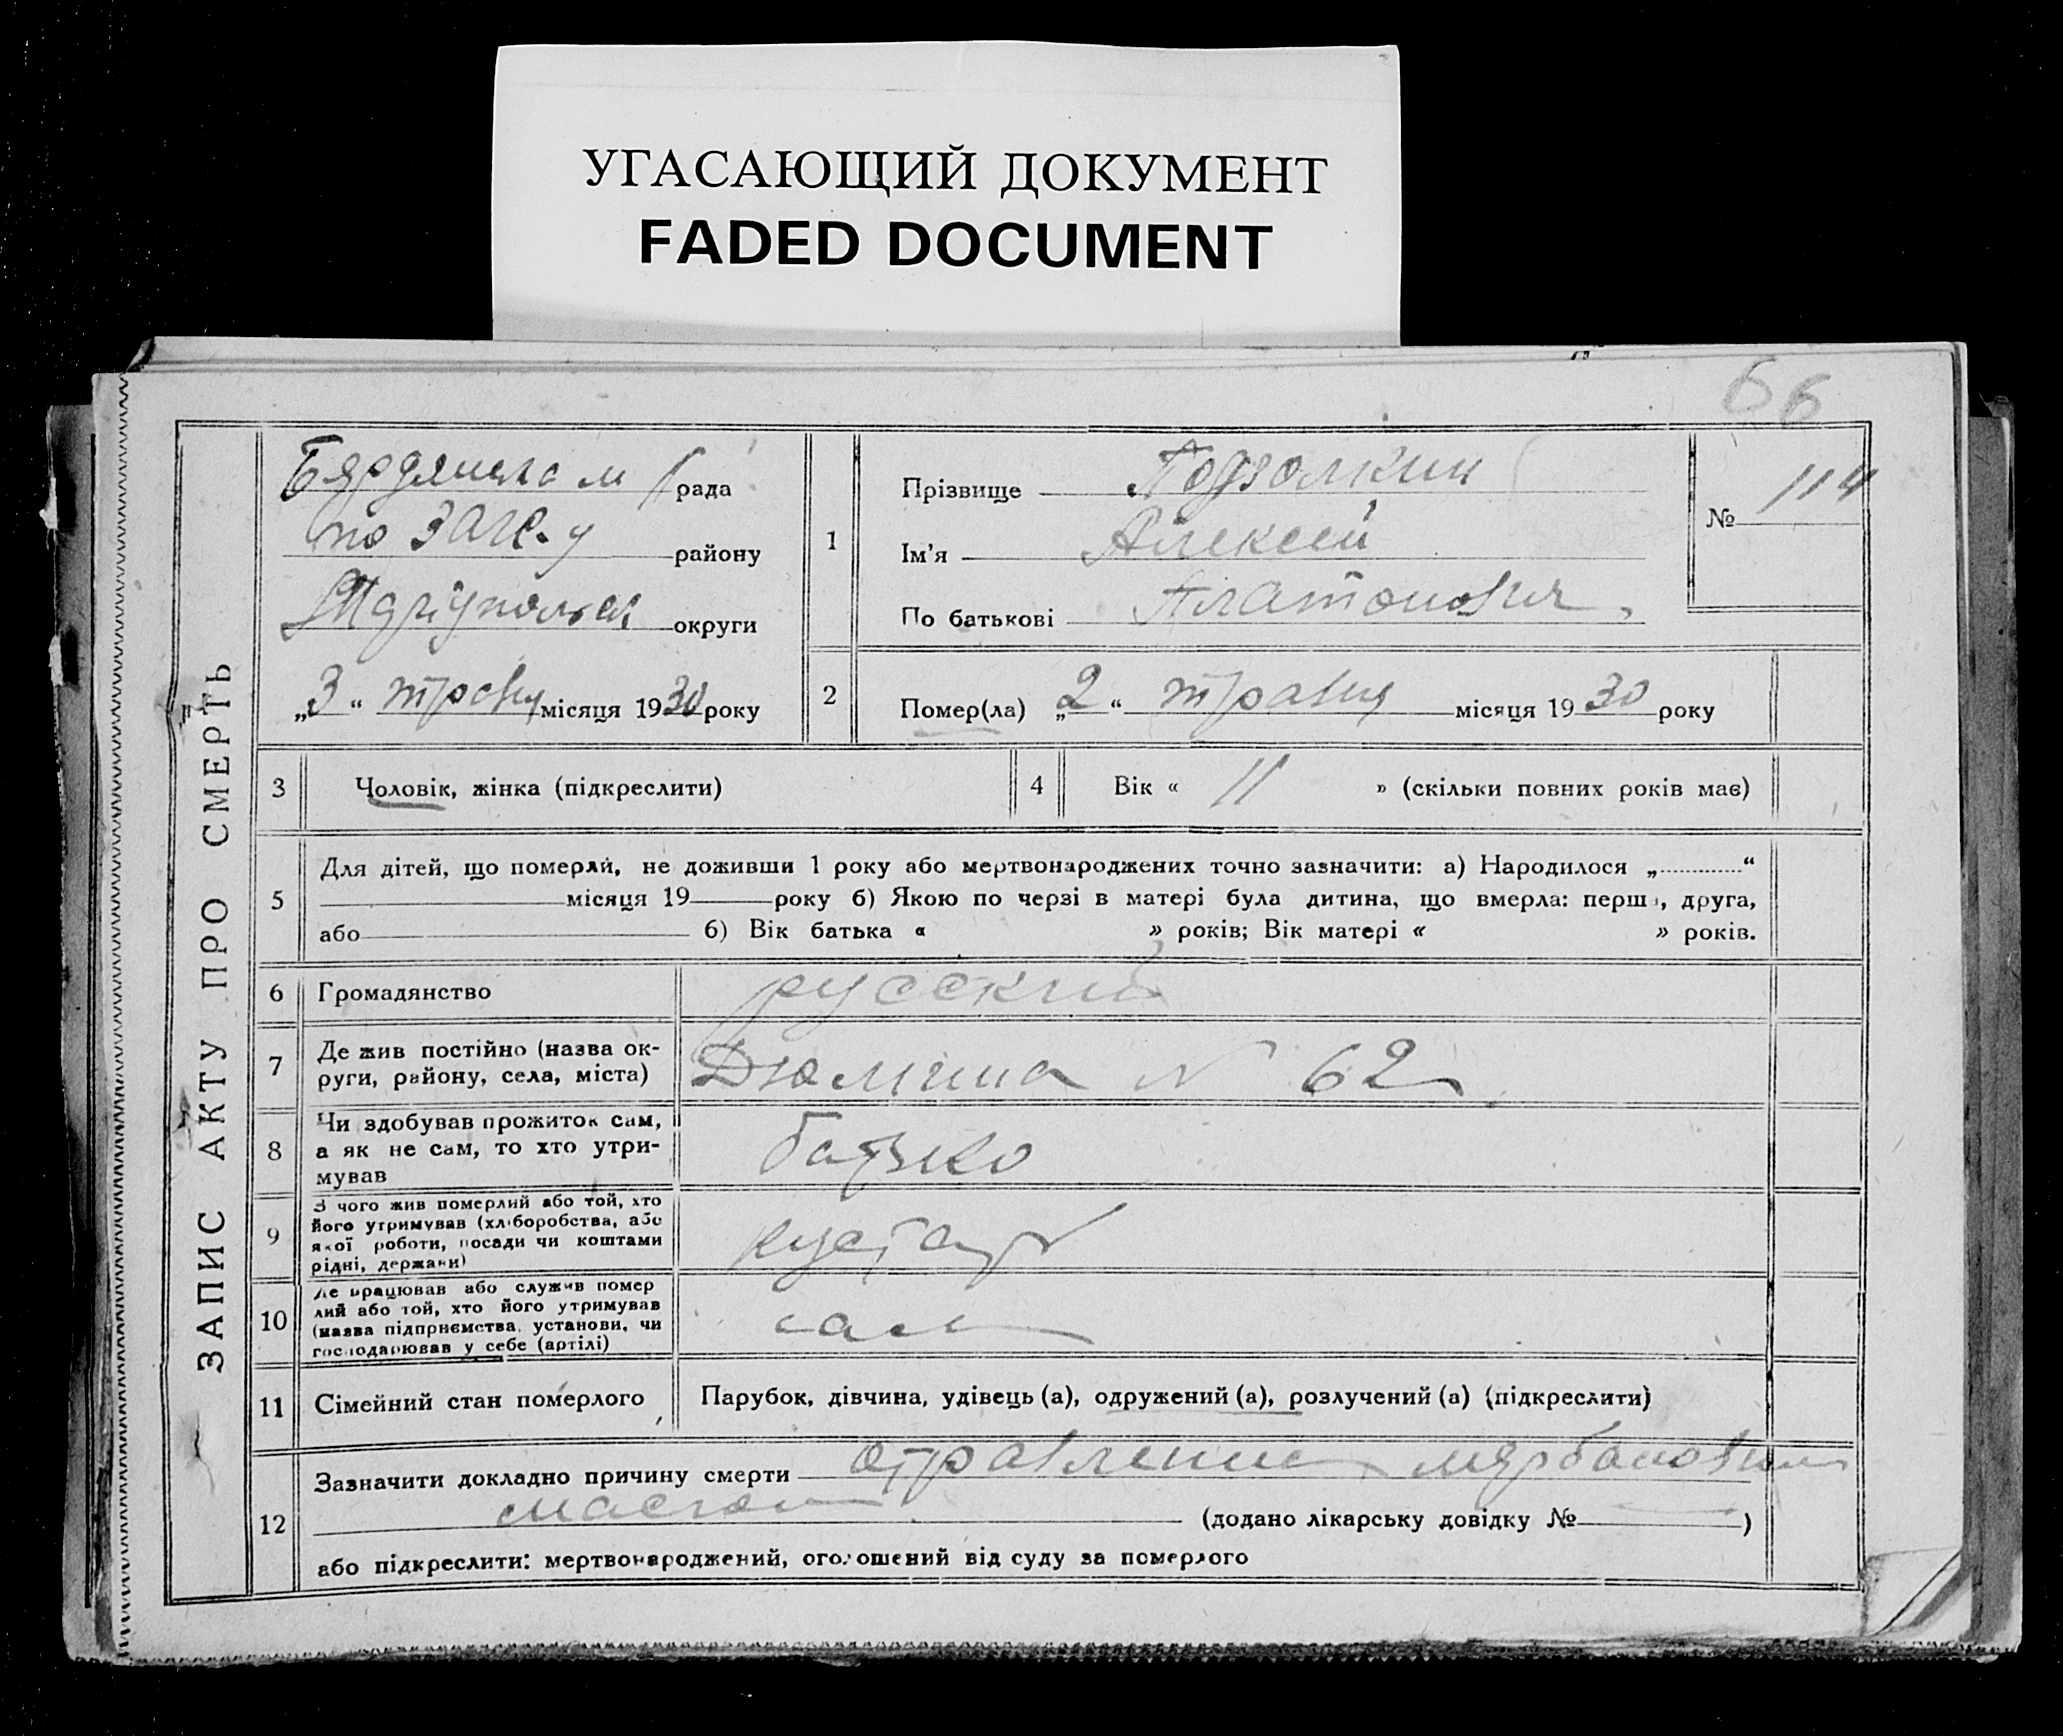 УГАСАЮЩИЙ ДОКУМЕНТ
FADED DOCUMENT
66
ЗАПИС АКТУ ПРО СМЕРТЬ
рада
по ЗАГС-у району
округи
„3“ травня місяця 1930 року
1
Прізвище Подзолкин
Ім'я Алексей
По батькові Платонович
№ 114
2
Помер(ла) „2“ травня місяця 1930 року
3 Чоловік, жінка (підкреслити)
4 Вік « 11 » (скільки повних років має)
5
Для дітей, що померли, не доживши 1 року або мертвонароджених точно зазначити: а) Народилося „............“
місяця 19 року б) Якою по черзі в матері була дитина, що вмерла: перша, друга,
або б) Вік батька « » років; Вік матері « » років.
6 Громадянство русский
7
Де жив постійно (назва ок-
руги, району, села, міста)
Дюмина № 62
8
Чи здобував прожиток сам,
а як не сам, то хто утри-
мував
батько
9
З чого жив померлий або той, хто
його утримував (хліборобства, або
якої роботи, посади чи коштами
рідні, держави)
кустар
10
Де працював або служив помер
лий або той, хто його утримував
(назва підприємства, установи, чи
господарював у себе (артілі)
сам
11 Сімейний стан померлого Парубок, дівчина, удівець (а), одружений (а), розлучений (а) (підкреслити)
12
Зазначити докладно причину смерти отравление мярбановим
маслом (додано лікарську довідку № )
або підкреслити: мертвонароджений, оголошений від суду за померлого